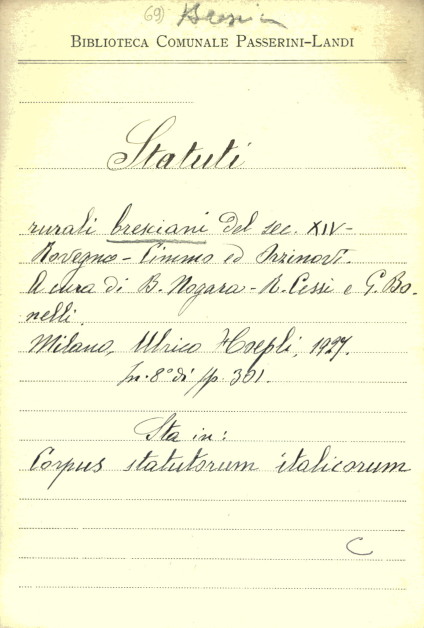 69) Brescia
BIBLIOTECA COMUNALE PASSERINI-LANDI
Statuti
rurali bresciani del sec. XIV-
Bovegno - Cimmo ed Orzinovi.
A cura di B. Nogara - R. Cessi e G. Bo-
nelli.
Milano, Ulrico Hoepli, 1927.
In-8° di pp. 301.
Sta in:
Corpus statutorum italicorum
C